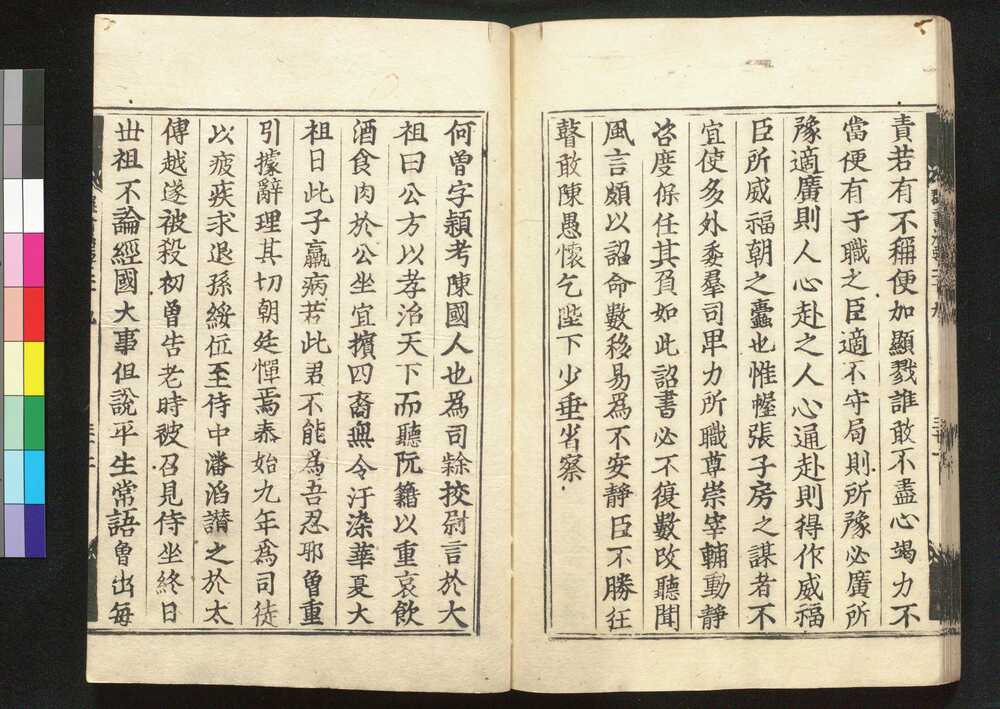 責若有不稱便加顯戮誰敢不盡心竭力不
當便有于職之臣適不守局則所豫必廣所
豫適廣則人心赴之人心通赴則得作威福
臣所威福朝之蠹也惟幄張子房之謀者不
宜使多外委羣司畢力所職尊崇宰輔動靜
咨度保任其負如此詔書必不復數改聽聞
風言頗以詔命數移易為不安靜臣不勝狂
瞽敢陳愚懷乞陛下少垂省察
何曾字頴考陳國人也為司隸挍尉言於大
祖曰公方以孝治天下而聽阮籍以重哀飲
酒食肉於公坐宜擯四裔無令汙染華夏大
祖曰此子羸病若此君不能為吾忍耶曾重
引據辭理其切朝廷憚焉泰始九年為司徒
以疲疾求退孫綏位至侍中潘滔譖之於太
傅越遂被殺初曾告老時被召見侍坐終日
世祖不論經國大事但說平生常語曾出每